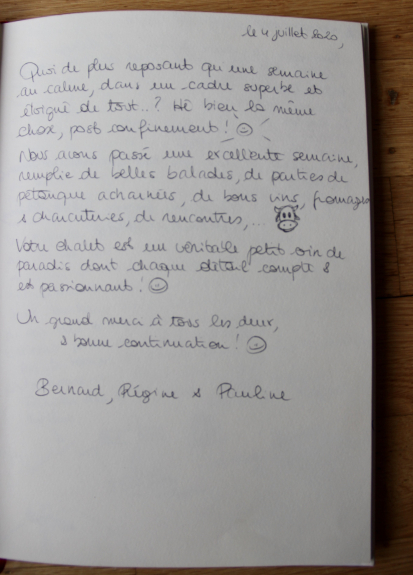 le 4 juillet 2020,
Quoi de plus reposant qu'une semaine
au calme, dans un cadre superbe et
éloigné de tout..? Hé bien la même
chose, post confinement !
Nous avons passé une excellente semaine,
remplie de belles balades, de parties de
pétanque acharnées, de bons vins, fromages
& charcuteries, de rencontres,...
Votre chalet est un véritable petit coin de
paradis dont chaque détail compte &
est passionnant !
Un grand merci à tous les deux,
& bonne continuation !
Bernard, Régine & Pauline